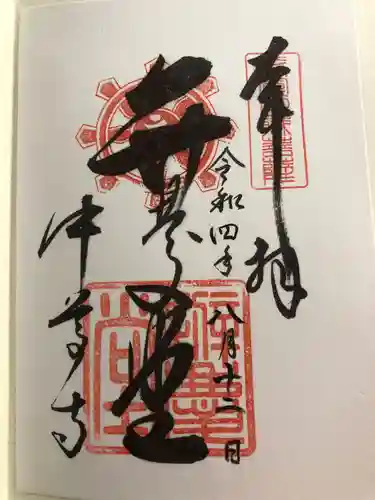 奉拝
令和四年八月十二日
弁慶堂
中尊寺